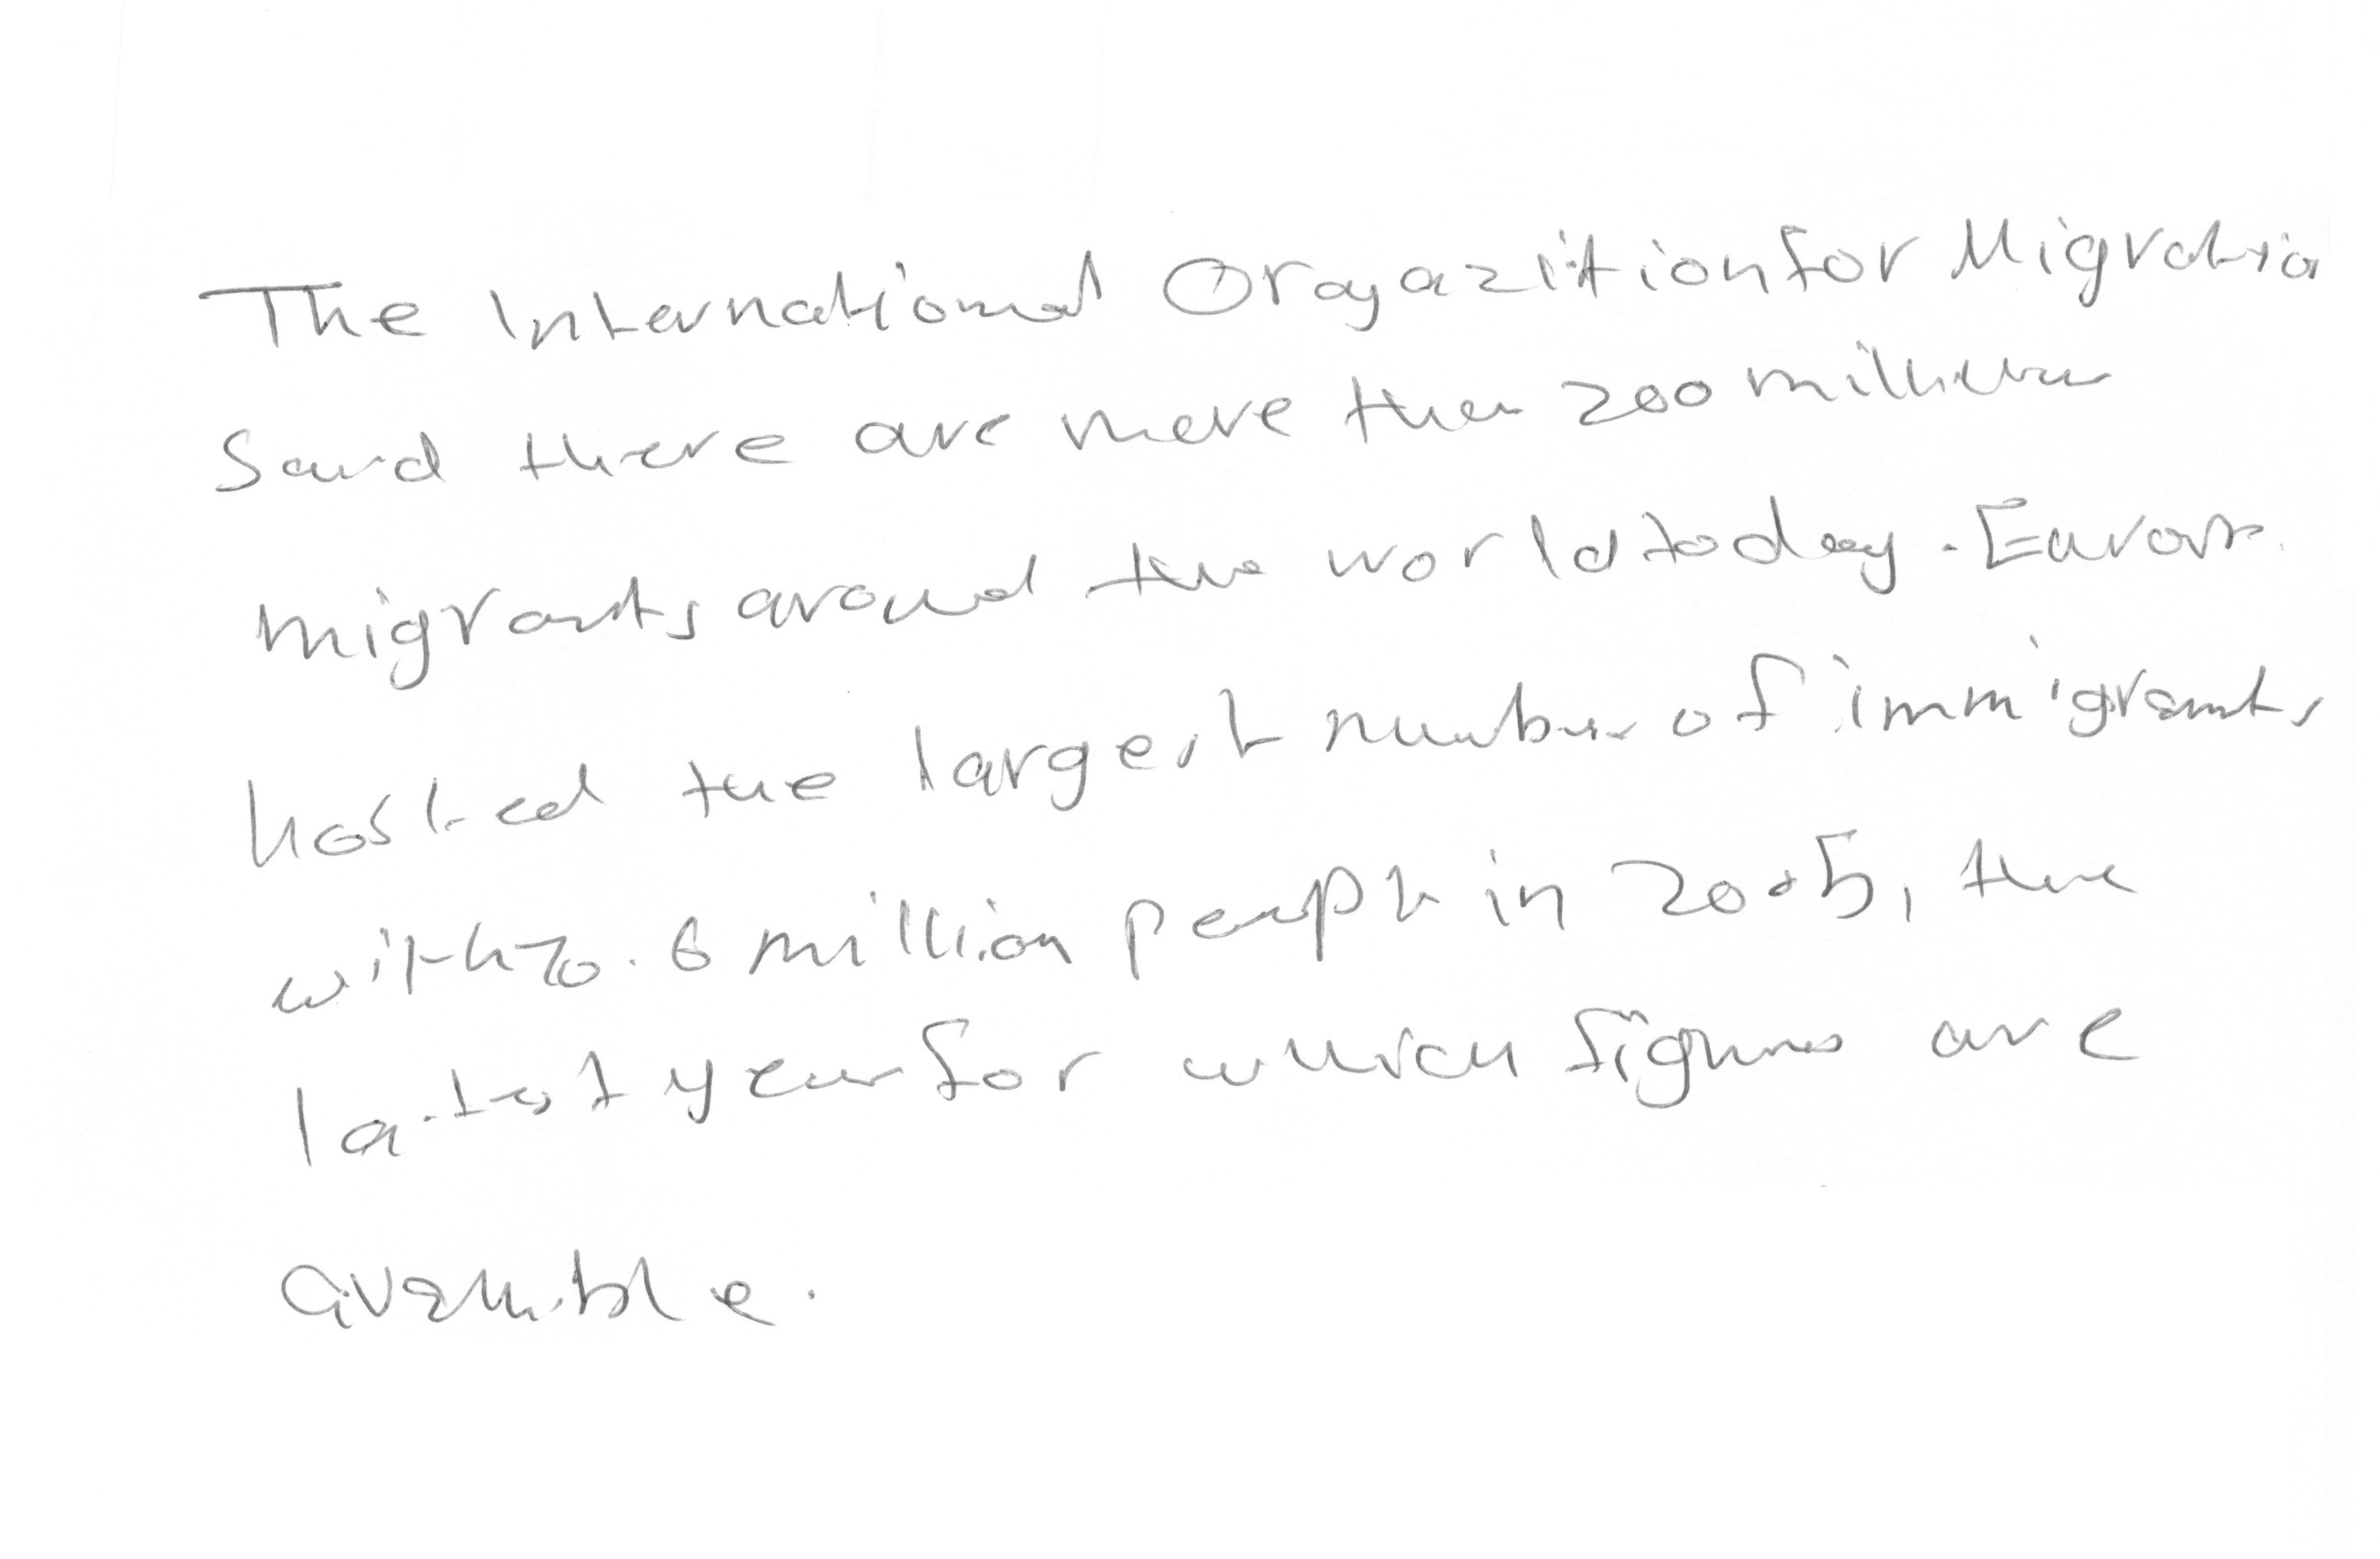 The International Orgazition for Migration
said there are more than 200 million
migrants around the world today. Europe
hosted the largest number of immigrants
with 70.6 million people in 2005, the
latest year for which figures are
available.